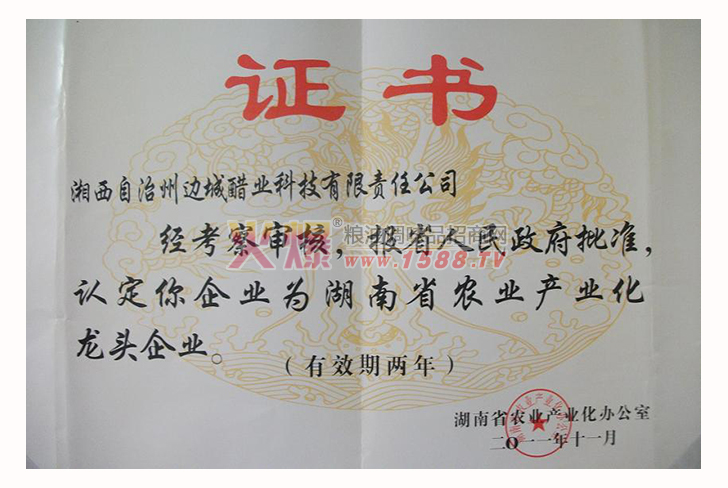 证书
湘西自治州边城醋业科技有限责任公司
经考察审核，报省人民政府批准，
认定你企业为湖南省农业产业化
龙头企业。
（有效期两年）
湖南省农业产业化办公室
二〇一一年十一月
火爆®粮油调味品招商网
www.1588.TV